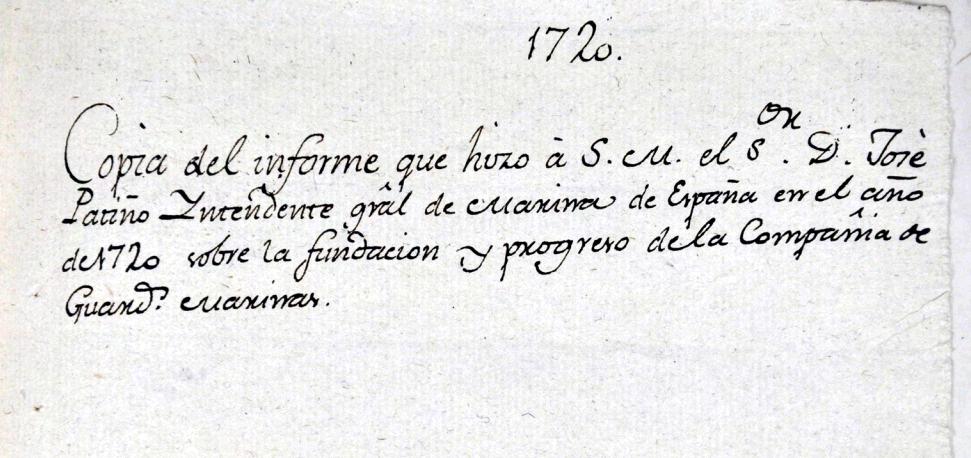 1720.
Copia del informe que hizo à S. M. el S.or D. Josè
Patiño Yntendente grâl de Marina de España en el año
de 1720 sobre la fundacion y progreso de la Compañia de
Guard.s Marinas.